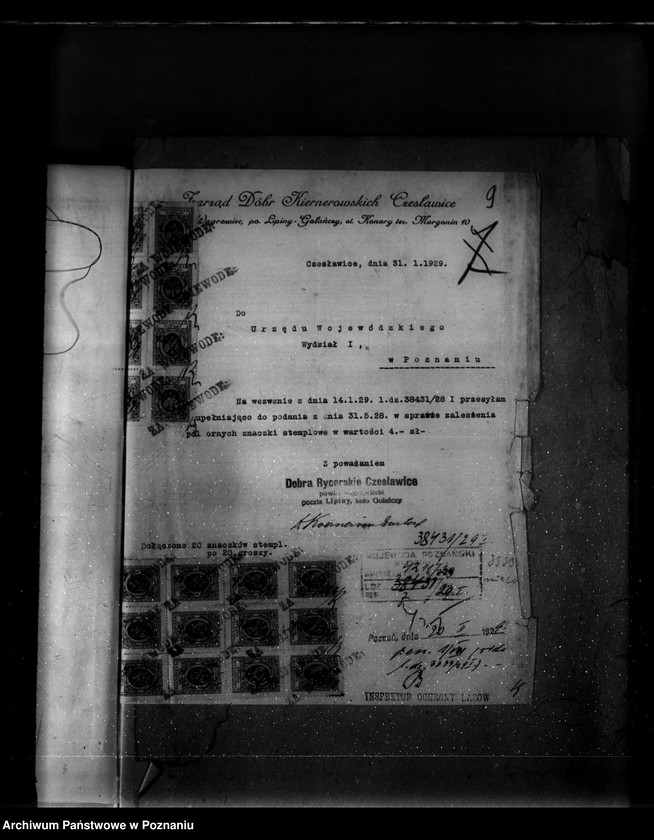 9
Zarząd Dóbr Kiernerowskich Czesławice
Wągrowiec, po. Lipiny-Gołańczy, st. Konary tel. Margonin 10
Czesławice, dnia 31. 1.1929.
Do
Urzędu Wojewódzkiego
Wydział I ,
w Poznaniu
Na wezwanie z dnia 14.1.29. l.dz.38431/28 I przesyłam
upełniająco do podania z dnia 31.5.28. w sprawie zalesienia
pól ornych znaczki stemplowe w wartości 4.- zł-
Z poważaniem
Dobra Rycerskie Czesławice
poczta Lipiny, koło Gołańczy
38431/29 I
Dołączono 20 znaczków stempl.
po 20 groszy.
WOJEWODA POZNAŃSKI
38431
Poznań, dnia 20
INSPEKTOR OCHRONY LASÓW
ZA WOJEWODĘ:
Archiwum Państwowe w Poznaniu